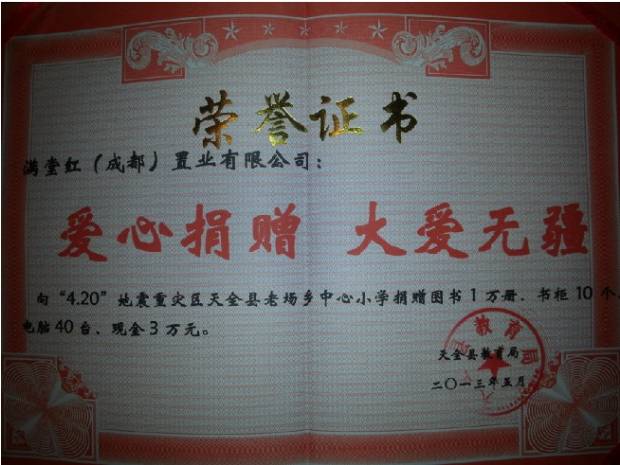 荣誉证书
满堂红（成都）置业有限公司：
爱心捐赠 大爱无疆
向“4.20”地震重灾区天全县老场乡中心小学捐赠图书1万册、书柜10个、
电脑40台、现金3万元。
天全县教育局
二〇一三年五月